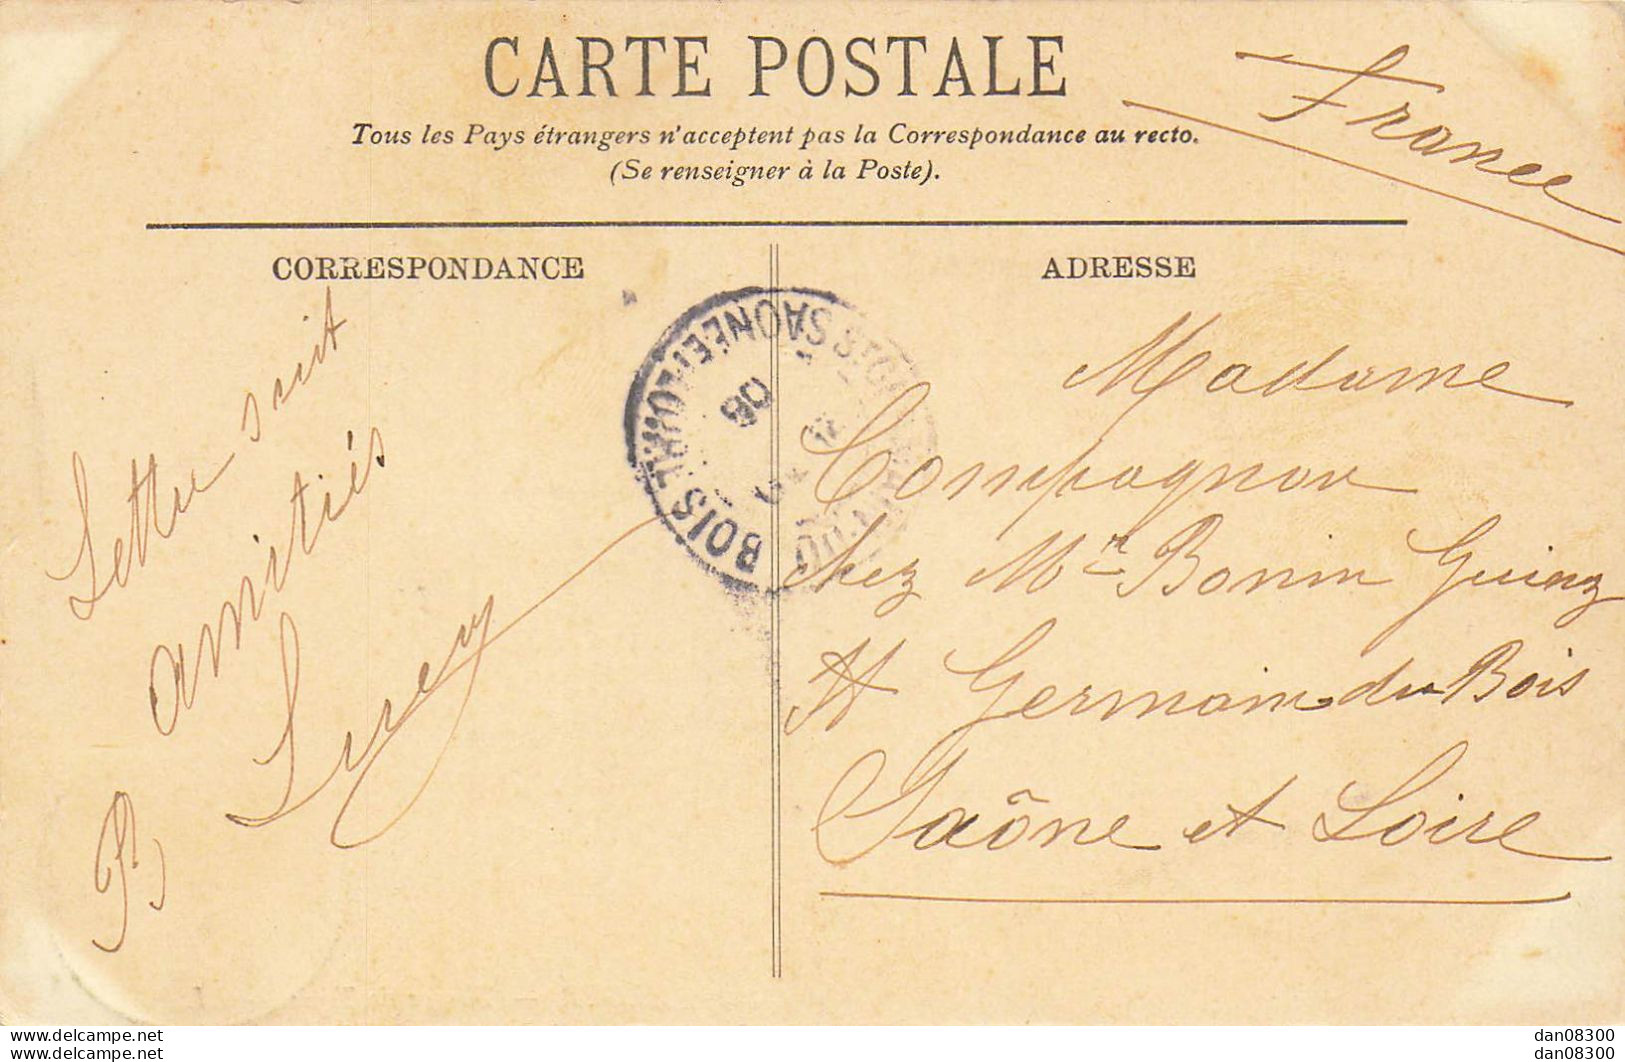 CARTE POSTALE
France
Tous les Pays étrangers n'acceptent pas la Correspondance au recto.
(Se renseigner à la Poste).
CORRESPONDANCE
Lettre suit
amitiés
P. Lurey
BOIS SAÔNE-ET-LOIRE
08
ADRESSE
Madame
Compagnon
chez Mr Bonin
St Germain-du-Bois
Saône et Loire
www.delcampe.net
www.delcampe.net
dan08300
dan08300